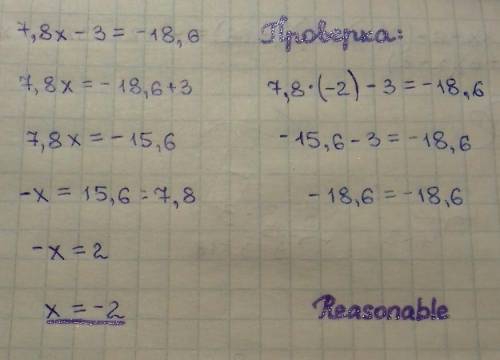 7,8x - 3 = -18,6
7,8x = -18,6+3
7,8x = -15,6
-x = 15,6 : 7,8
-x = 2
x = -2
Проверка:
7,8·(-2) - 3 = -18,6
-15,6 - 3 = -18,6
-18,6 = -18,6
Reasonable